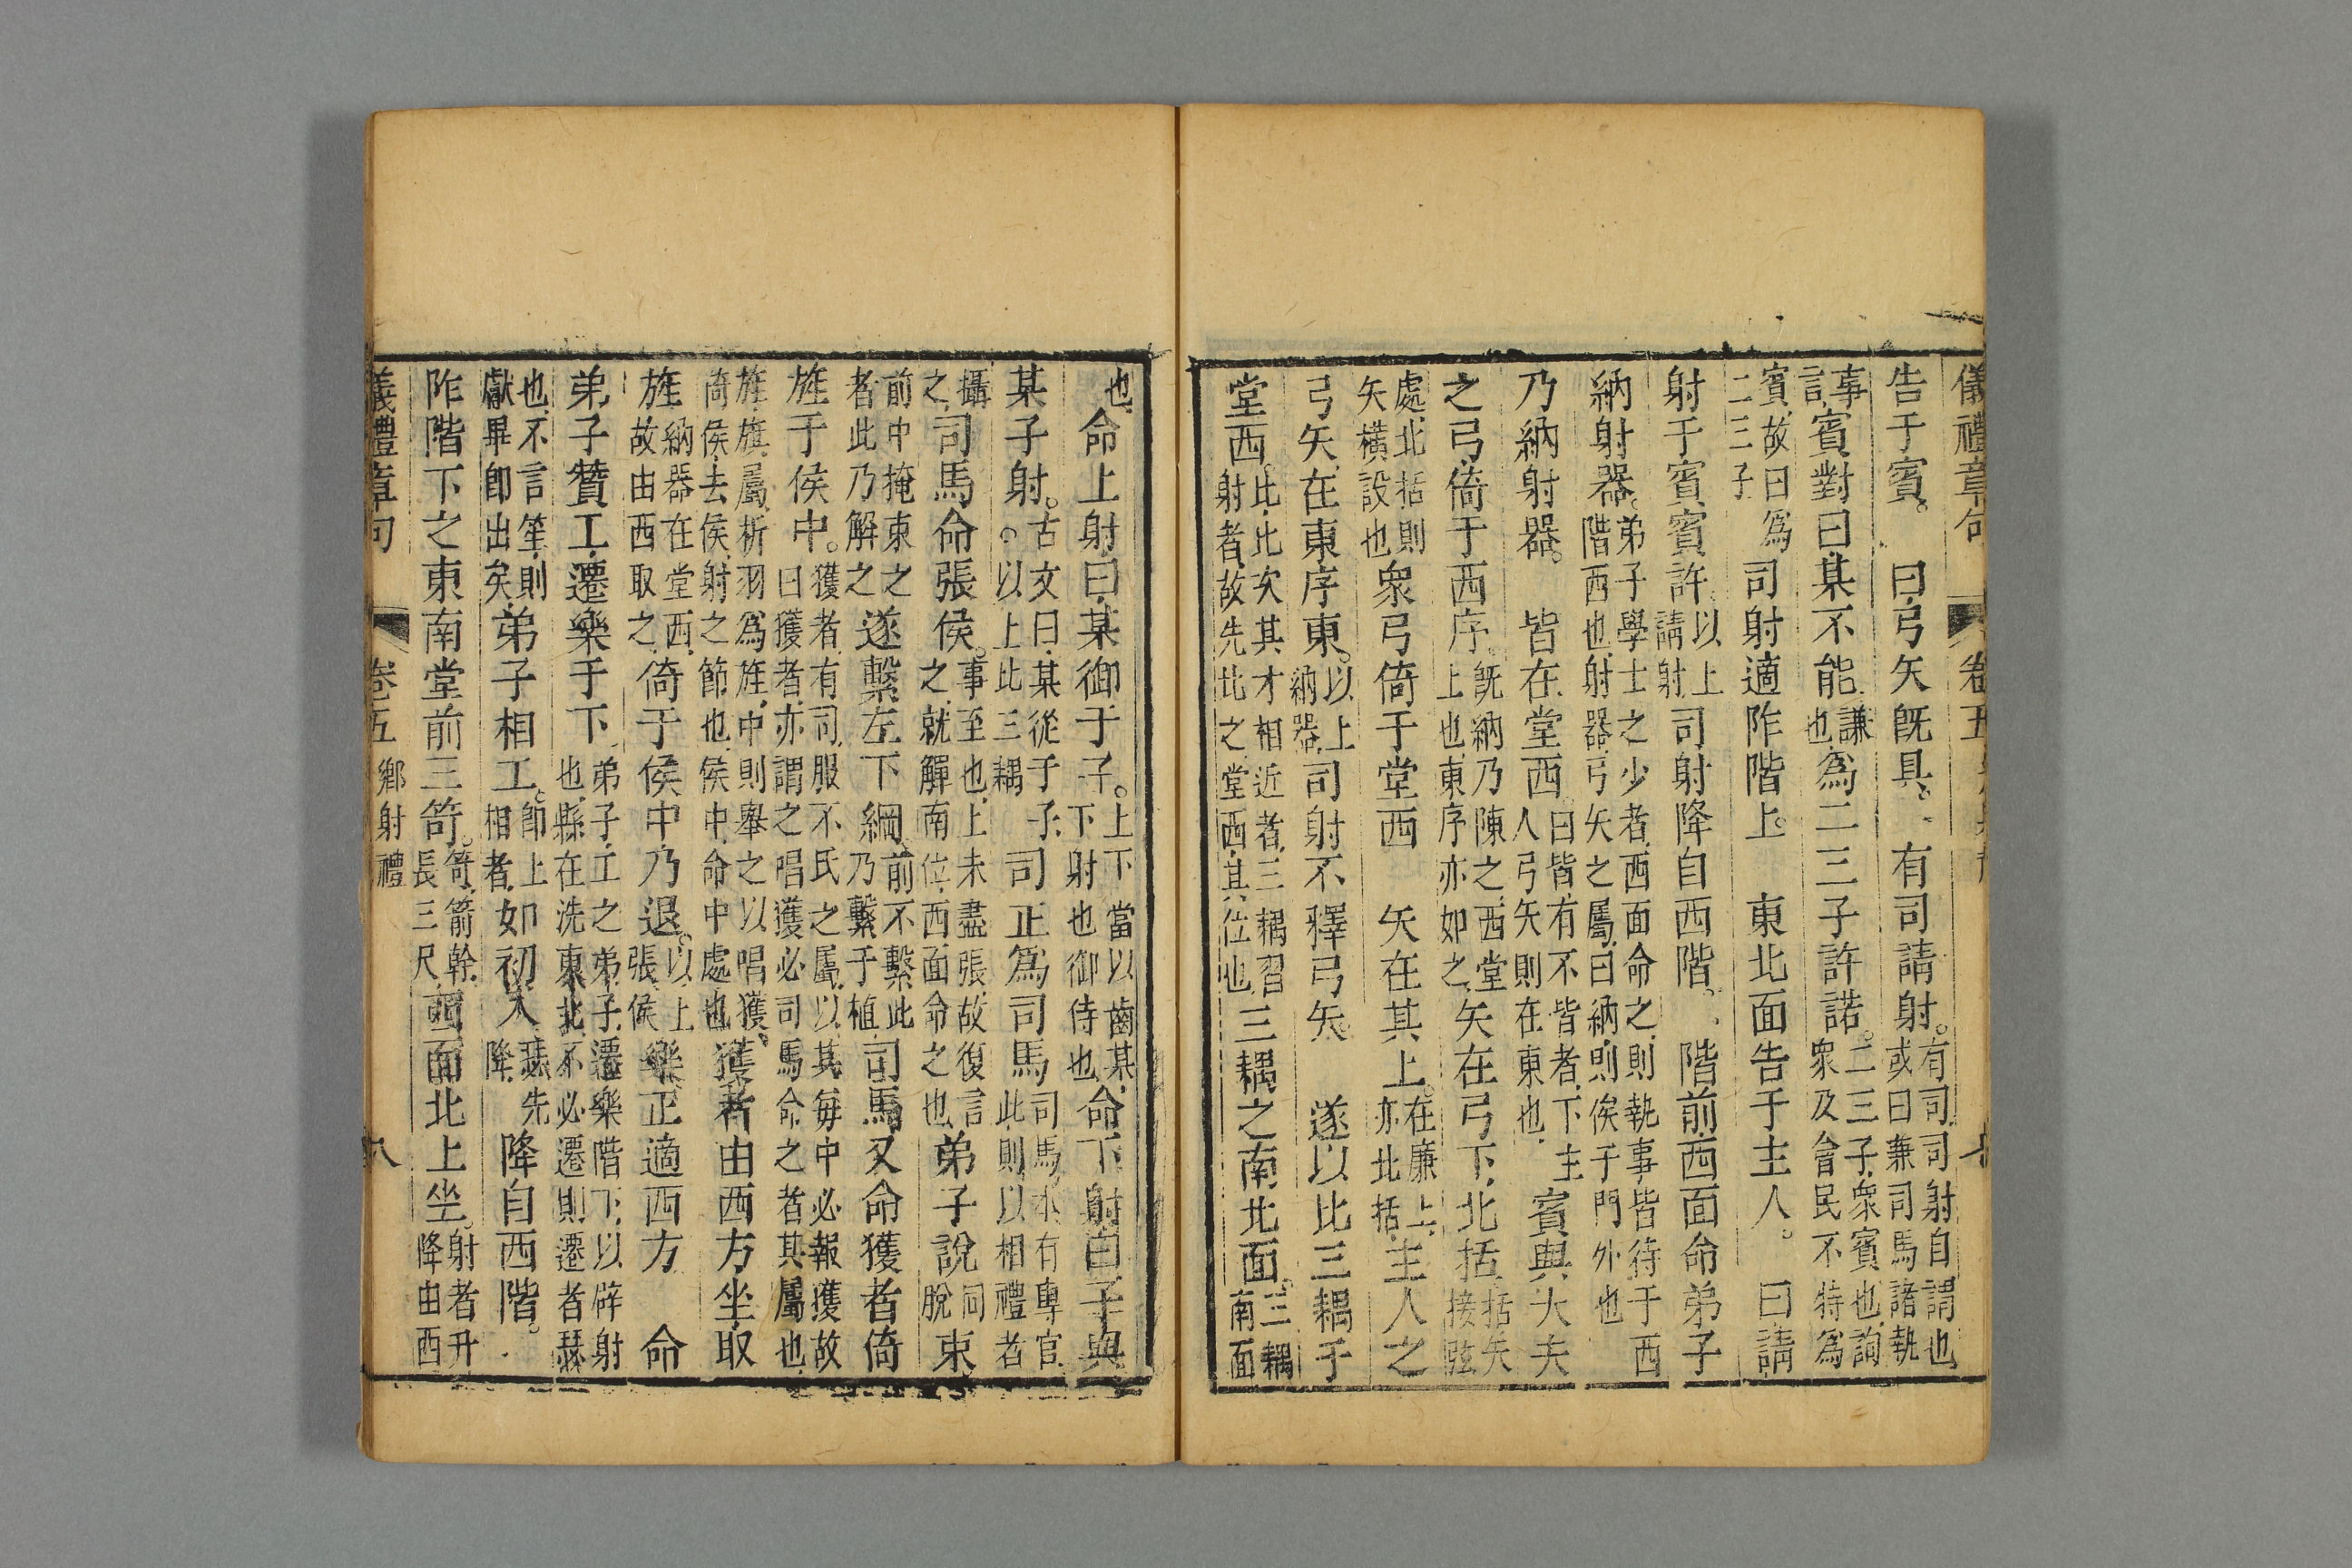 儀禮章句 卷五 七
告于賓。曰弓矢既具。有司請射。有司司射自謂也或曰兼司馬諸執
事言賓對曰某不能謙也為二三子許諾。二三子眾賓也詢眾及會民不特為
賓故曰為二三子司射適阼階上。東北面告于主人。曰請
射于賓賓許。以上請射司射降自西階。階前西面命弟子
納射器。弟子學士之少者西面命之則執事皆待于西階西也射器弓矢之屬曰納則俟于門外也
乃納射器。皆在堂西。曰皆有不皆者下主人弓矢則在東也賓與大夫
之弓倚于西序。既納乃陳之西堂上也東序亦如之矢在弓下北括括矢接弦
處北括則矢橫設也眾弓倚于堂西矢在其上。在廉上亦北括主人之
弓矢在東序東。以上納器司射不釋弓矢。遂以比三耦于
堂西。比比次其才相近者三耦習射者故先比之堂西其位也三耦之南北面。三耦南面
也命上射曰某御于子。上下當以齒某下射也御侍也命下射曰子與
某子射。古文曰某從于子。以上比三耦司正為司馬司馬不有專官此則以相禮者
攝之司馬命張侯。事至也上未盡張故復言之就觶南位西面命之也弟子說同脫東
前中掩東之者此乃解之遂繫左下綱前不繫此乃繫于植司馬又命獲者倚
旌于侯中。獲者有司服不氏之屬以其每中必報獲故曰獲者亦謂之唱獲必司馬命之者其屬也
旌旗屬析羽為旌中則舉之以唱獲倚侯去侯射之節也侯中命中處也獲者由西方坐取
旌納器在堂西故由西取之倚于侯中乃退。以上張侯樂正適西方命
弟子贊工遷樂于下弟子工之弟子遷樂階下以辟射也縣在洗東北不必遷則遷者瑟
也不言笙則獻畢即出矣弟子相工。即上相者如初入瑟先降降自西階。
阼階下之東南堂前三笴。笴箭榦長三尺西面北上坐。射者升降由西
儀禮章句 卷五 鄉射禮 八